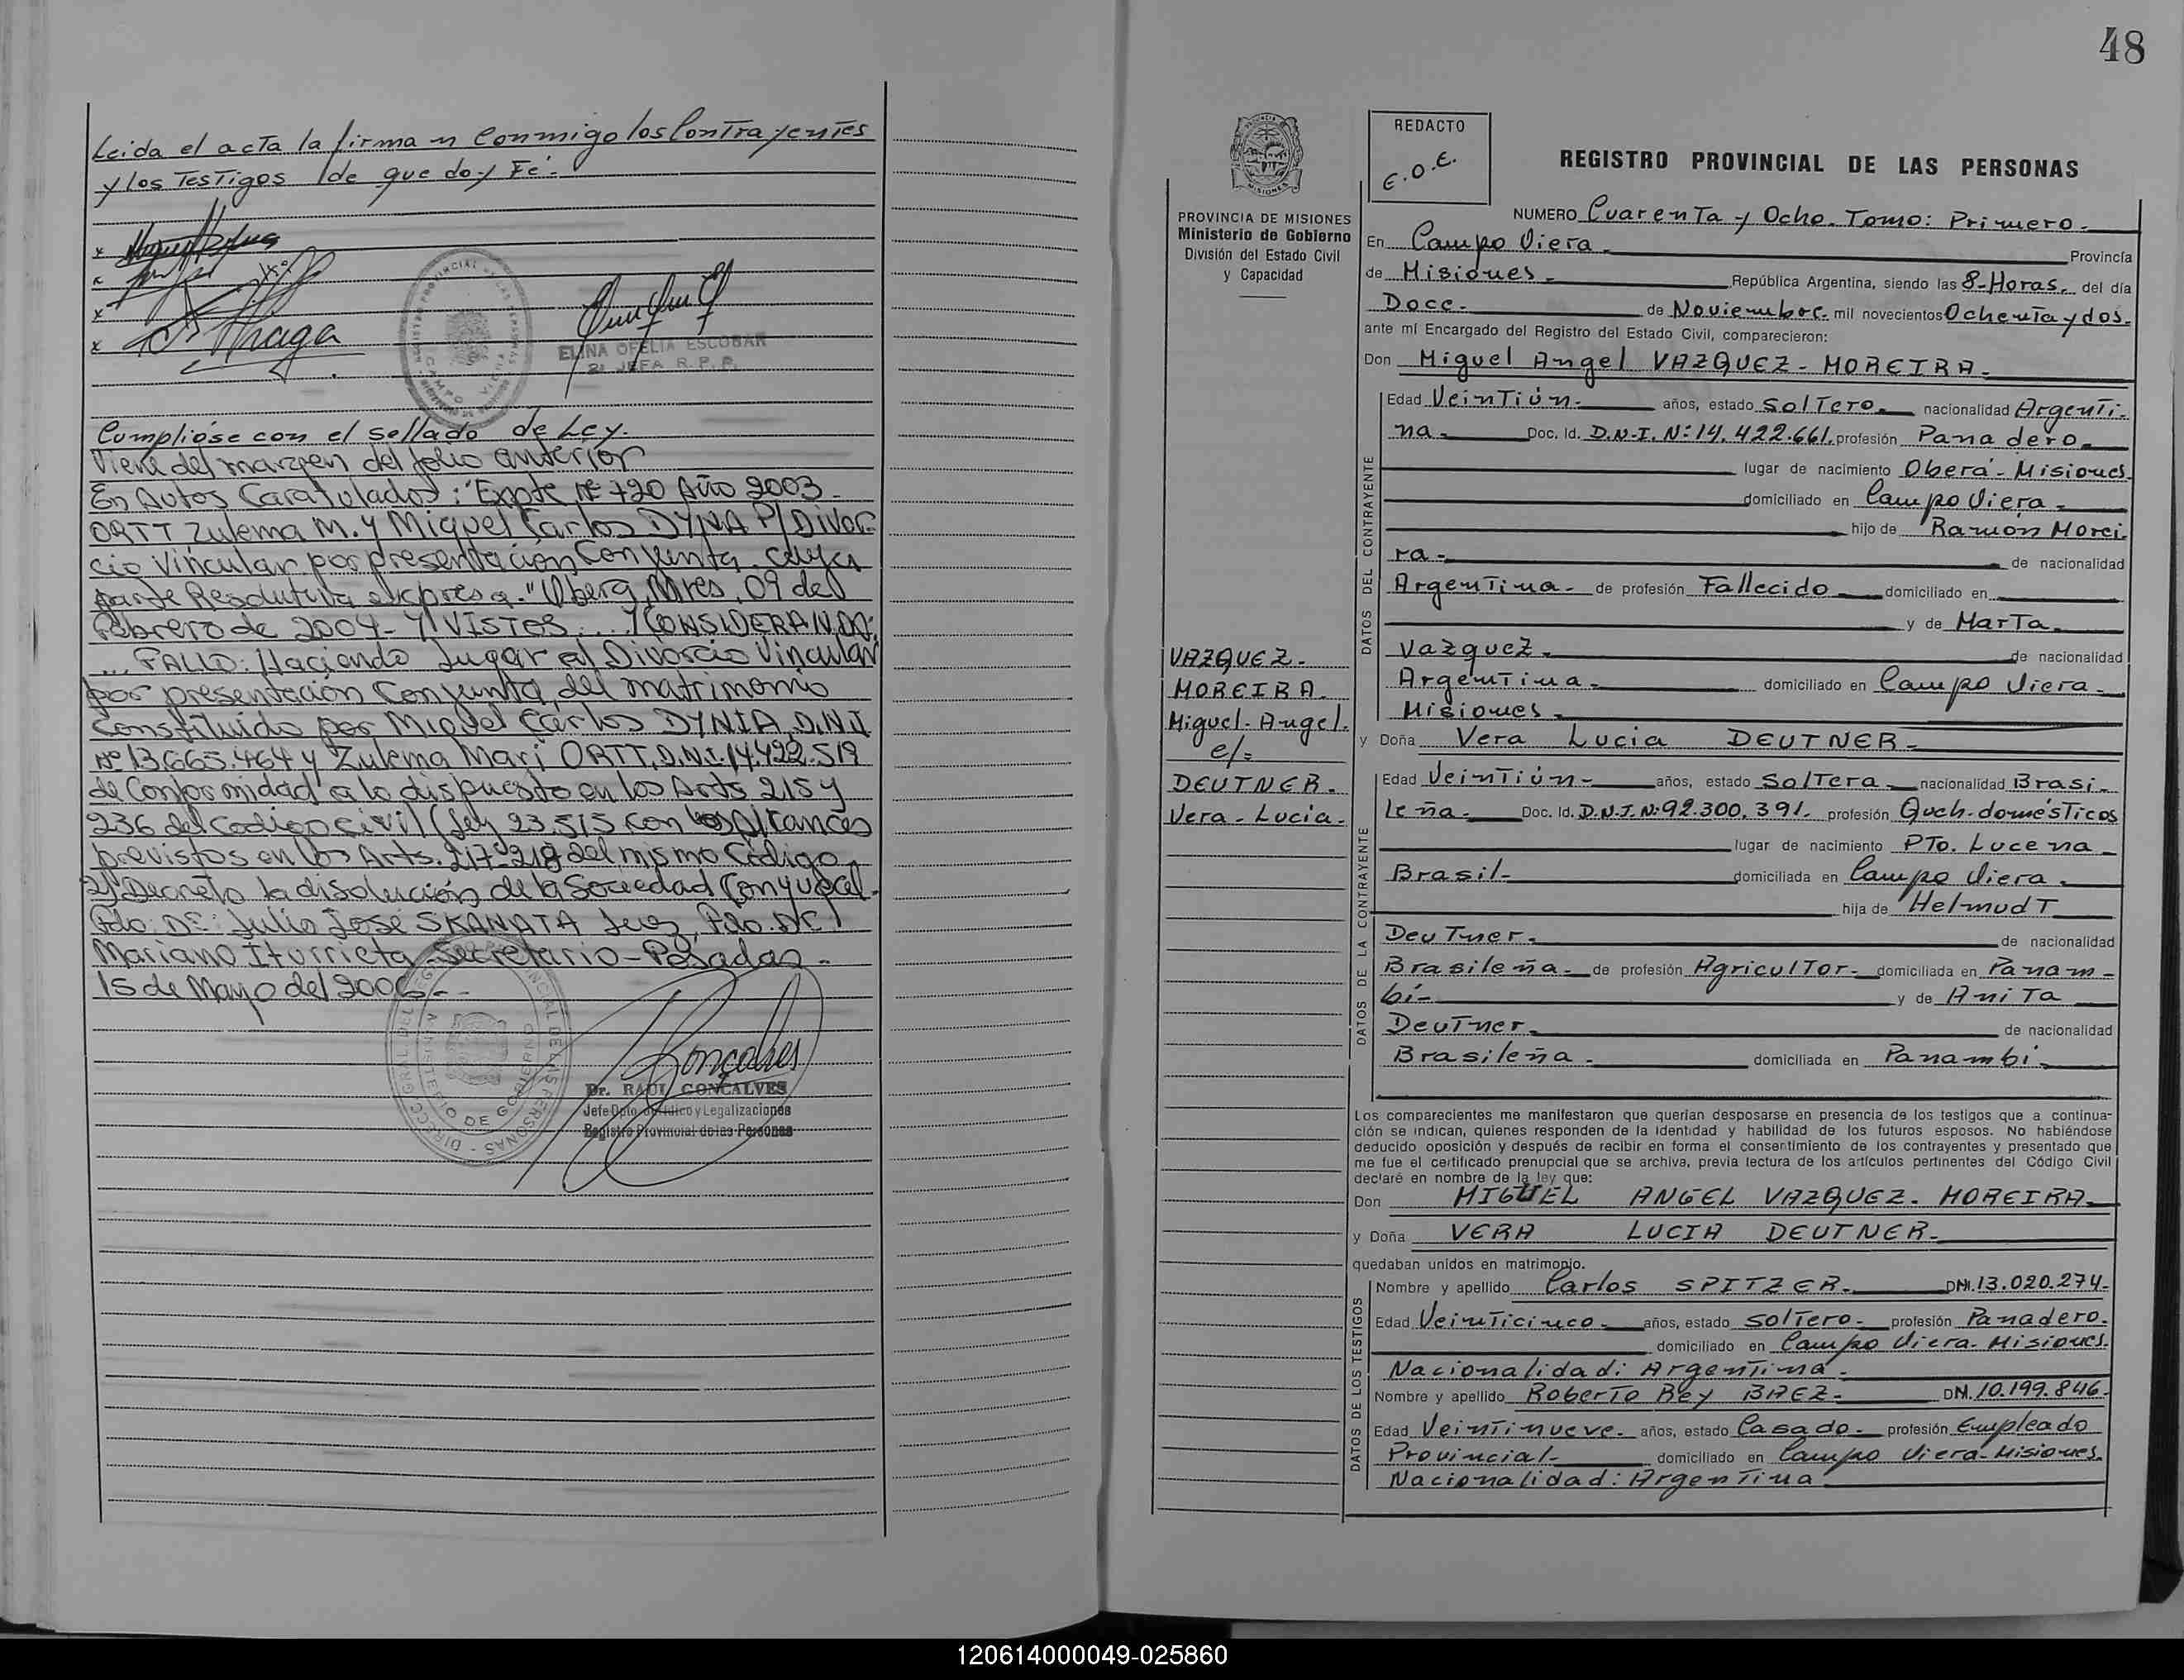 Leida el acta la firman conmigo los Contrayentes
y los Testigos de que doy Fé.
ELINA OFELIA ESCOBAR
JEFA R.P.P.
Cumplióse con el sellado de Ley.
Viene del margen del folio anterior
En Autos Caratulados: "Expte Nº 720 Año 2003
ORTT Zulema M. y Miguel Carlos DYNA P/Divor-
cio Vincular por presentación Conjunta. cuya
parte Resolutiva expresa. "Oberá, Mnes, 09 de
Febrero de 2004- Y VISTOS: ... Y CONSIDERANDO:
... FALLO: Haciendo lugar al Divorcio Vincular
por presentación Conjunta del matrimonio
constituido por Miguel Carlos DYNIA D.N.I
Nº 13.665.464 y Zulema Mari ORTT, D.N.I. 14.422.519
de Conformidad a lo dispuesto en los Arts 215 y
236 del Codigo Civil (Ley 23.515 con los Alcances
previstos en los Arts. 217-218 del mismo Código
2) Decreto la disolución de la Sociedad Conyugal.
Fdo: Dr: Julio José SKANATA Juez, Fdo. Dr
Mariano Iturrieta Secretario - Posadas -
15 de Mayo del 2006 -
Dr. RAUL GONCALVES
Jefe Dpto. Jurídico y Legalizaciones
Registro Provincial de las Personas
48
PROVINCIA DE MISIONES
Ministerio de Gobierno
División del Estado Civil
y Capacidad
REDACTO
E.O.E.
REGISTRO PROVINCIAL DE LAS PERSONAS
NUMERO Cuarenta y Ocho. Tomo: Primero.
En Campo Viera. Provincia
de Misiones. República Argentina, siendo las 8-Horas. del día
Doce. de Noviembre. mil novecientos Ochenta y dos.
ante mí Encargado del Registro del Estado Civil, comparecieron:
Don Miguel Angel VAZQUEZ - MOREIRA.
DATOS DEL CONTRAYENTE
Edad Veintiún. años, estado Soltero. nacionalidad Argenti-
na. Doc. Id. D.N.I. Nº 14.422.661. profesión Panadero.
lugar de nacimiento Oberá - Misiones
domiciliado en Campo Viera.
hijo de Ramón Morei-
ra. de nacionalidad
Argentina. de profesión Fallecido domiciliado en
y de Marta
Vazquez. de nacionalidad
Argentina. domiciliado en Campo Viera.
Misiones.
VAZQUEZ.
MOREIRA.
Miguel - Angel.
c/.
DEUTNER.
Vera - Lucia.
y Doña Vera Lucia DEUTNER.
DATOS DE LA CONTRAYENTE
Edad Veintiún. años, estado Soltera. nacionalidad Brasi-
leña. Doc. Id. D.N.I. Nº 92.300.391. profesión Queh. domésticos
lugar de nacimiento Pto. Lucena
Brasil. domiciliada en Campo Viera.
hija de Helmudt
Deutner. de nacionalidad
Brasileña. de profesión Agricultor. domiciliada en Panam-
bí. y de Anita
Deutner. de nacionalidad
Brasileña. domiciliada en Panambí
Los comparecientes me manifestaron que querían desposarse en presencia de los testigos que a continua-
ción se indican, quienes responden de la identidad y habilidad de los futuros esposos. No habiéndose
deducido oposición y después de recibir en forma el consentimiento de los contrayentes y presentado que
me fue el certificado prenupcial que se archiva, previa lectura de los artículos pertinentes del Código Civil
declaré en nombre de la ley que:
Don MIGUEL ANGEL VAZQUEZ - MOREIRA.
y Doña VERA LUCIA DEUTNER.
quedaban unidos en matrimonio.
DATOS DE LOS TESTIGOS
Nombre y apellido Carlos SPITZER. DNI. 13.020.274.
Edad Veinticinco. años, estado Soltero. profesión Panadero.
domiciliado en Campo Viera. Misiones.
Nacionalidad: Argentina
Nombre y apellido Roberto Rey BAEZ. DNI. 10.199.846.
Edad Veintinueve. años, estado Casado. profesión Empleado
Provincial. domiciliado en Campo Viera - Misiones.
Nacionalidad: Argentina
120614000049-025860